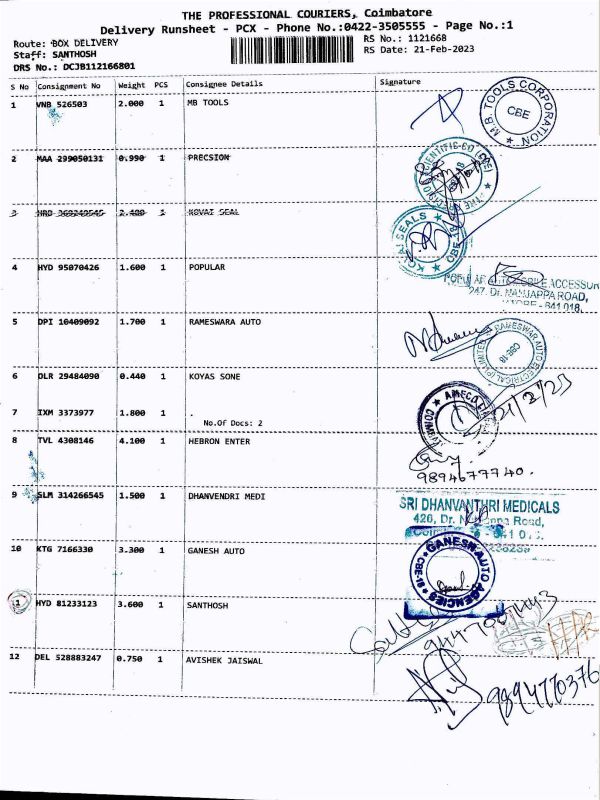 THE PROFESSIONAL COURIERS, Coimbatore
Delivery Runsheet - PCX - Phone No.:0422-3505555 - Page No.:1
Route: BOX DELIVERY
RS No.: 1121668
Staff: SANTHOSH
RS Date: 21-Feb-2023
DRS No.: DCJB112166801
S No Consignment No Weight PCS Consignee Details Signature
1 VNB 526503 2.000 1 MB TOOLS
M.B. TOOLS CORPORATION
CBE
2 MAA 299050131 0.990 1 PRECSION
3 HRD 369249545 2.400 1 KOVAI SEAL
KOVAI SEALS
CBE-18
4 HYD 95070426 1.600 1 POPULAR
247, Dr. NANJAPPA ROAD,
641 018.
5 DPI 10409092 1.700 1 RAMESWARA AUTO
RAMESWAR AUTO ELECTRICAL (P) LIMITED
CBE-18
6 DLR 29484090 0.440 1 KOYAS SONE
7 IXM 3373977 1.800 1 .
No.Of Docs: 2
21/2/23
8 TVL 4308146 4.100 1 HEBRON ENTER
9894677740.
9 SLM 314266545 1.500 1 DHANVENDRI MEDI
SRI DHANVANTHRI MEDICALS
426, Dr. Road,
10 KTG 7166330 3.300 1 GANESH AUTO
GANESH AUTO AGENCIES
CBE-18
11 HYD 81233123 3.600 1 SANTHOSH
12 DEL 528883247 0.750 1 AVISHEK JAISWAL
9894770376